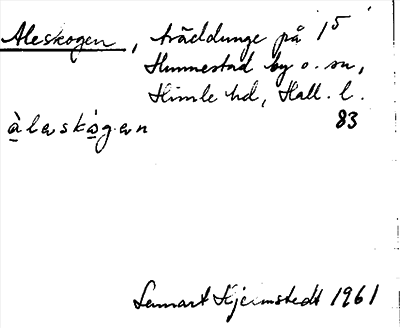 Aleskogen, träddunge på 1⁵
Hunnestad by o. sn,
Himle hd, Hall. l.
àlaskó̀gan 83
Lennart Hjelmstedt 1961